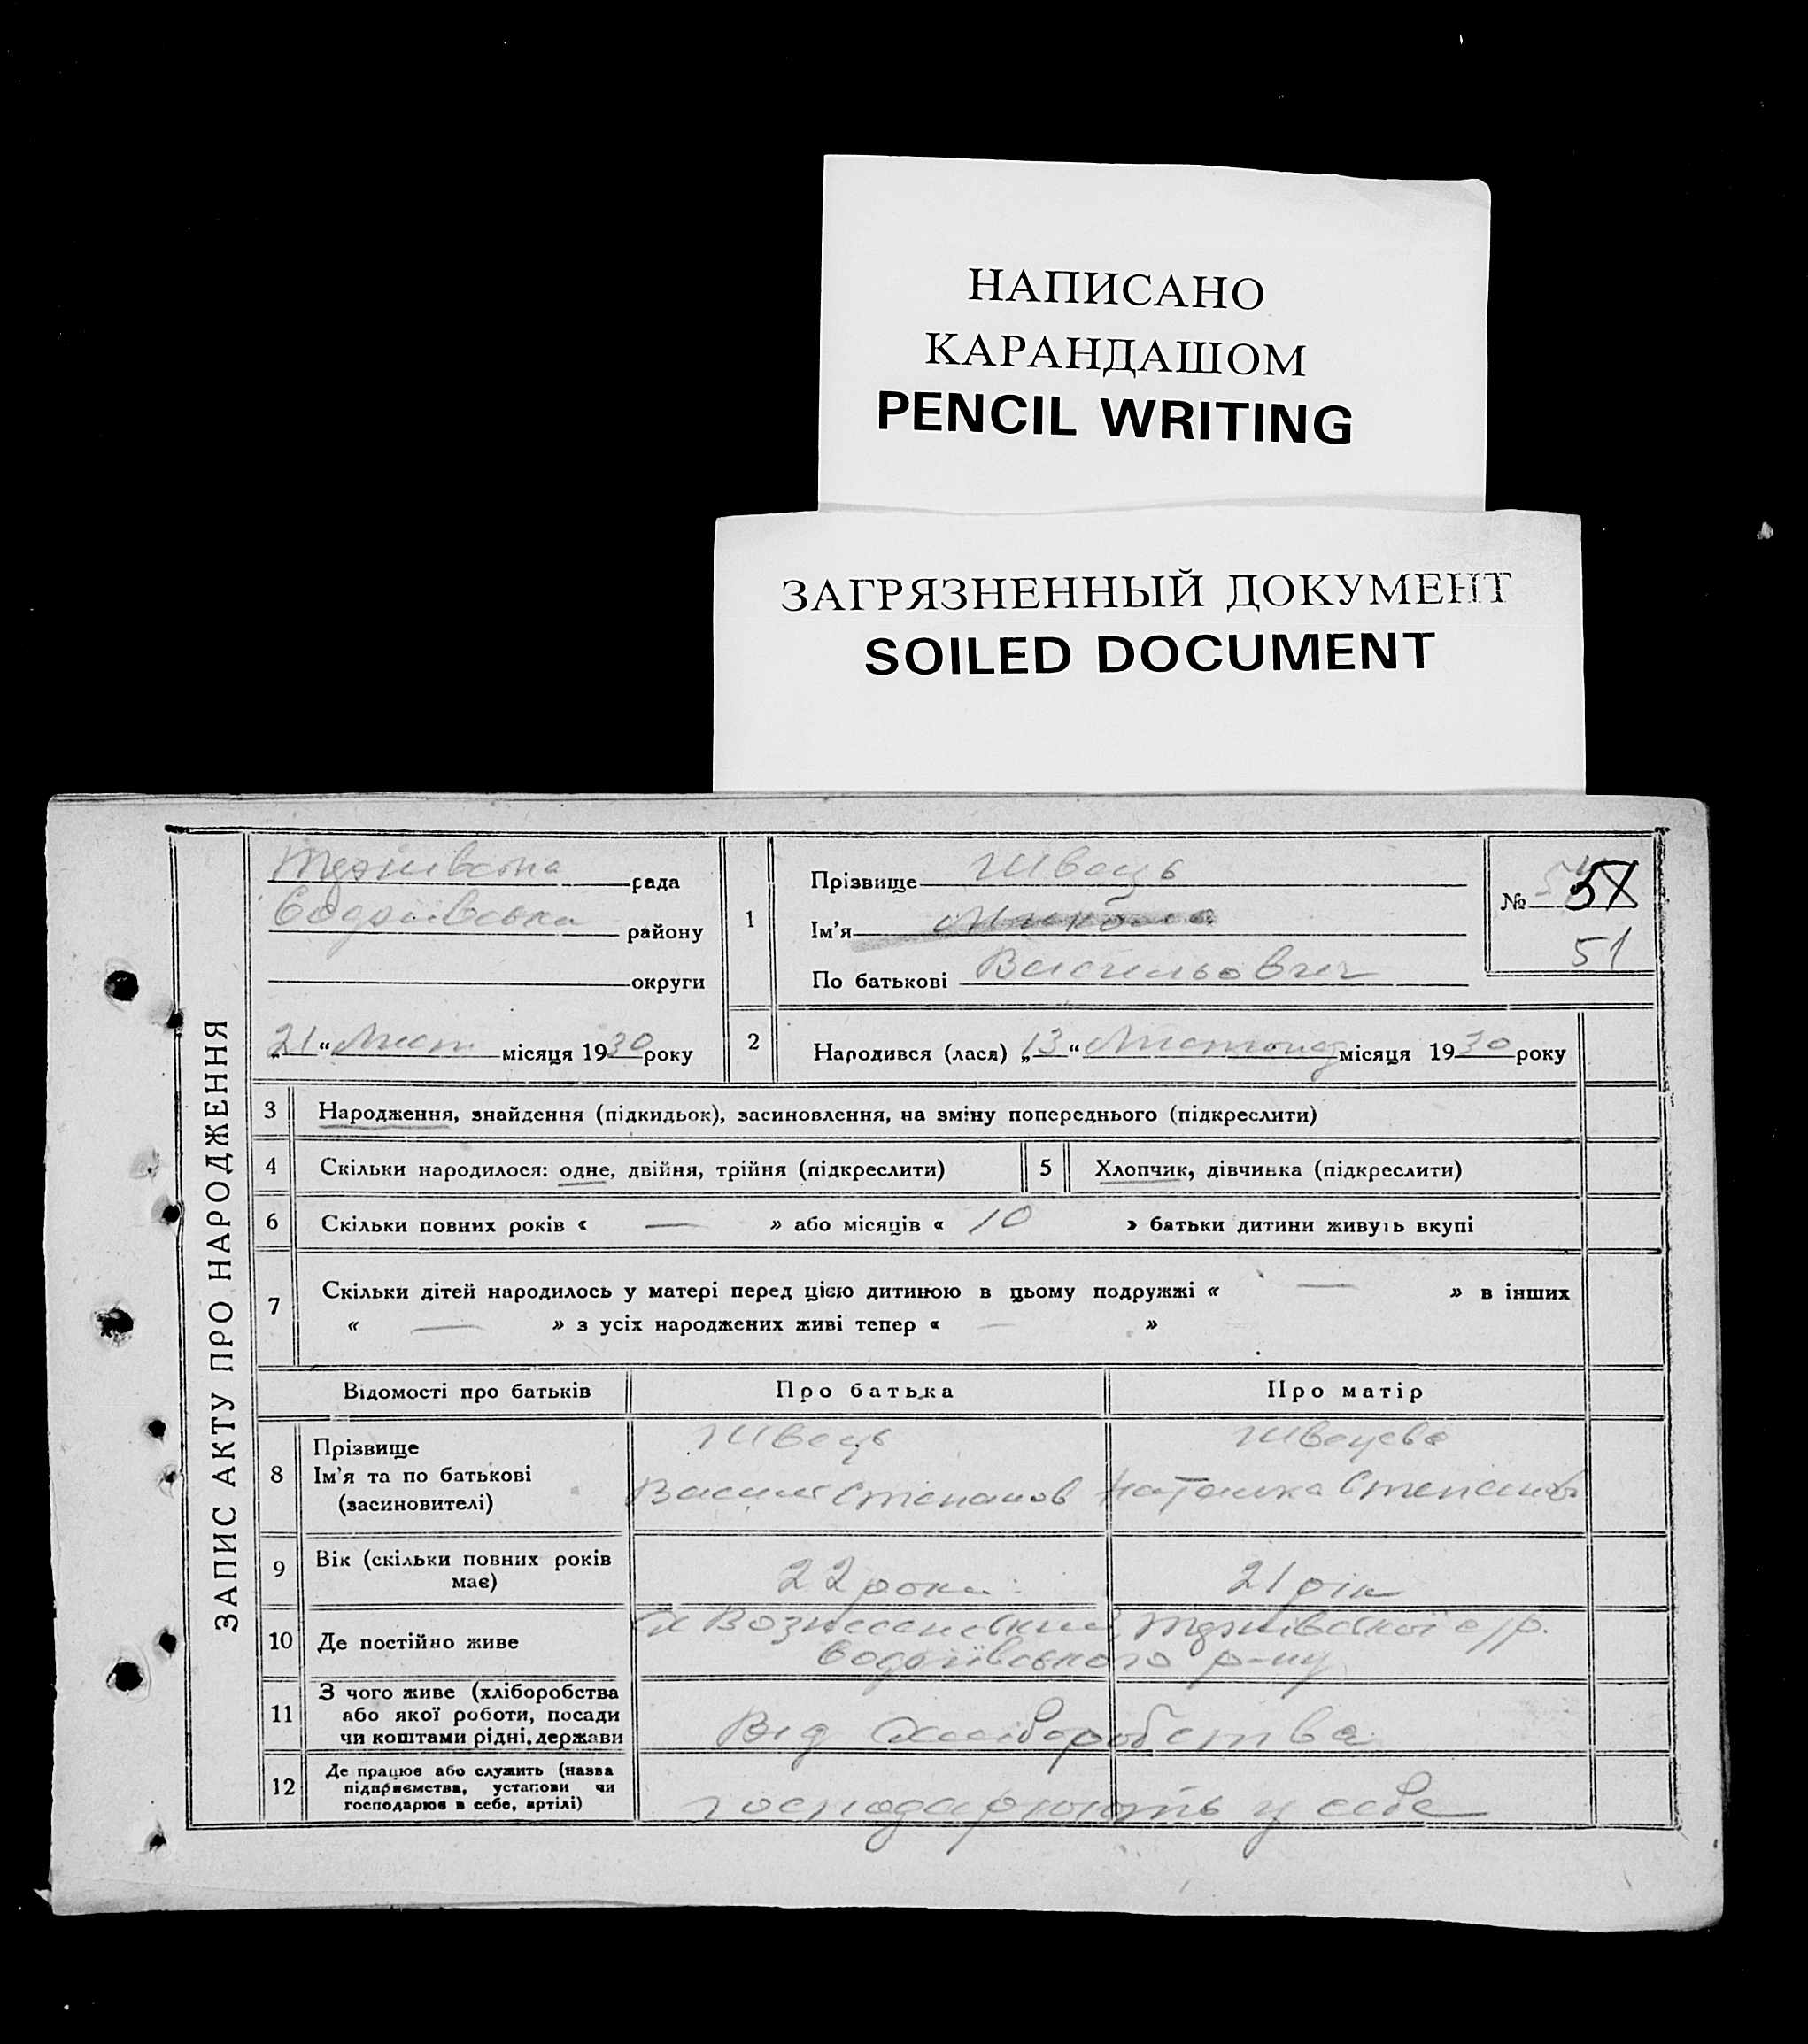 НАПИСАНО
КАРАНДАШОМ
PENCIL WRITING
ЗАГРЯЗНЕННЫЙ ДОКУМЕНТ
SOILED DOCUMENT
ЗАПИС АКТУ ПРО НАРОДЖЕННЯ
рада
району
округи
„21“ Лист. місяця 1930 року
1
Прізвище Швець
Ім'я Микола
По батькові Васильович
№ 51
51
2
Народився (лася) „13“ Листопад місяця 1930 року
3 Народження, знайдення (підкидьок), засиновлення, на зміну попереднього (підкреслити)
4 Скільки народилося: одне, двійня, трійня (підкреслити)
5 Хлопчик, дівчинка (підкреслити)
6 Скільки повних років « — » або місяців « 10 » батьки дитини живуть вкупі
7 Скільки дітей народилось у матері перед цією дитиною в цьому подружжі « — » в інших
« — » з усіх народжених живі тепер « — »
Відомості про батьків
Про батька
Про матір
8
Прізвище
Ім'я та по батькові
(засиновителі)
Швець
Василь Степанов
Швецева
Степанов
9
Вік (скільки повних років
має)
22 роки
21 рік
10 Де постійно живе
х Вознесенський с/р.
р-ну
11
З чого живе (хліборобства
або якої роботи, посади
чи коштами рідні, держави
Від хліборобства
12
Де працює або служить (назва
підприємства, установи чи
господарює в себе, артілі)
господарюють у себе